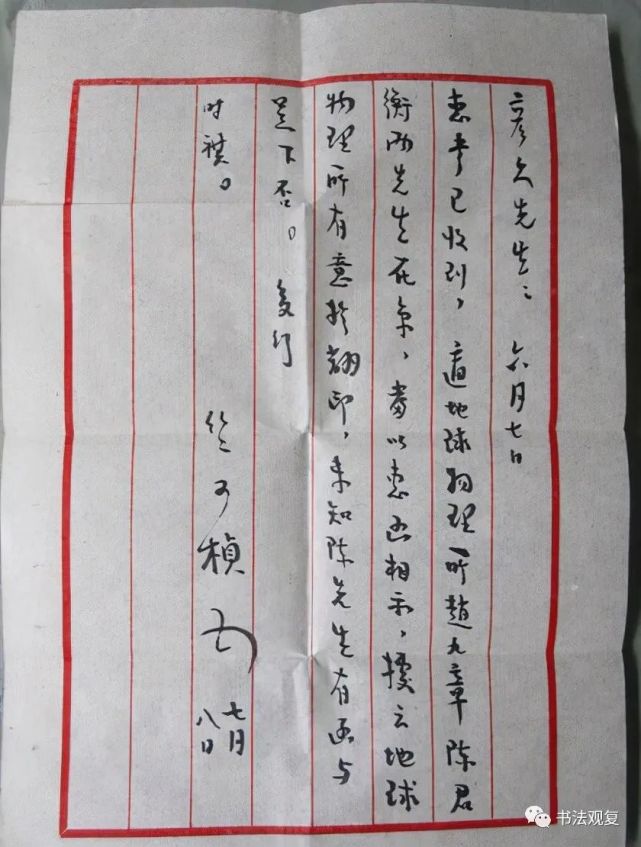 彦久先生： 六月七日
惠书已收到，适地球物理所赵九章陈君
衡两先生在京，当以惠函相示，据云地球
物理所有意于翻印，未知陈先生有函与
足下否。 复行
时祺。
竺可桢
七月
八日
书法观复